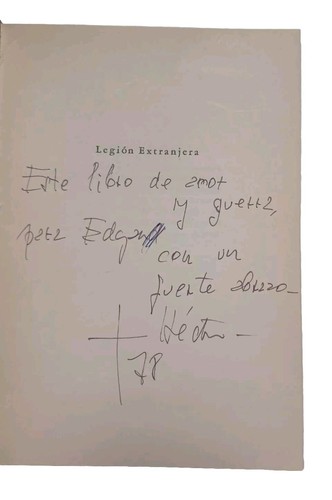 Legión Extranjera
Este libro de amor
y guerra,
para Edgar
con un
fuerte abrazo—
Héctor—
78